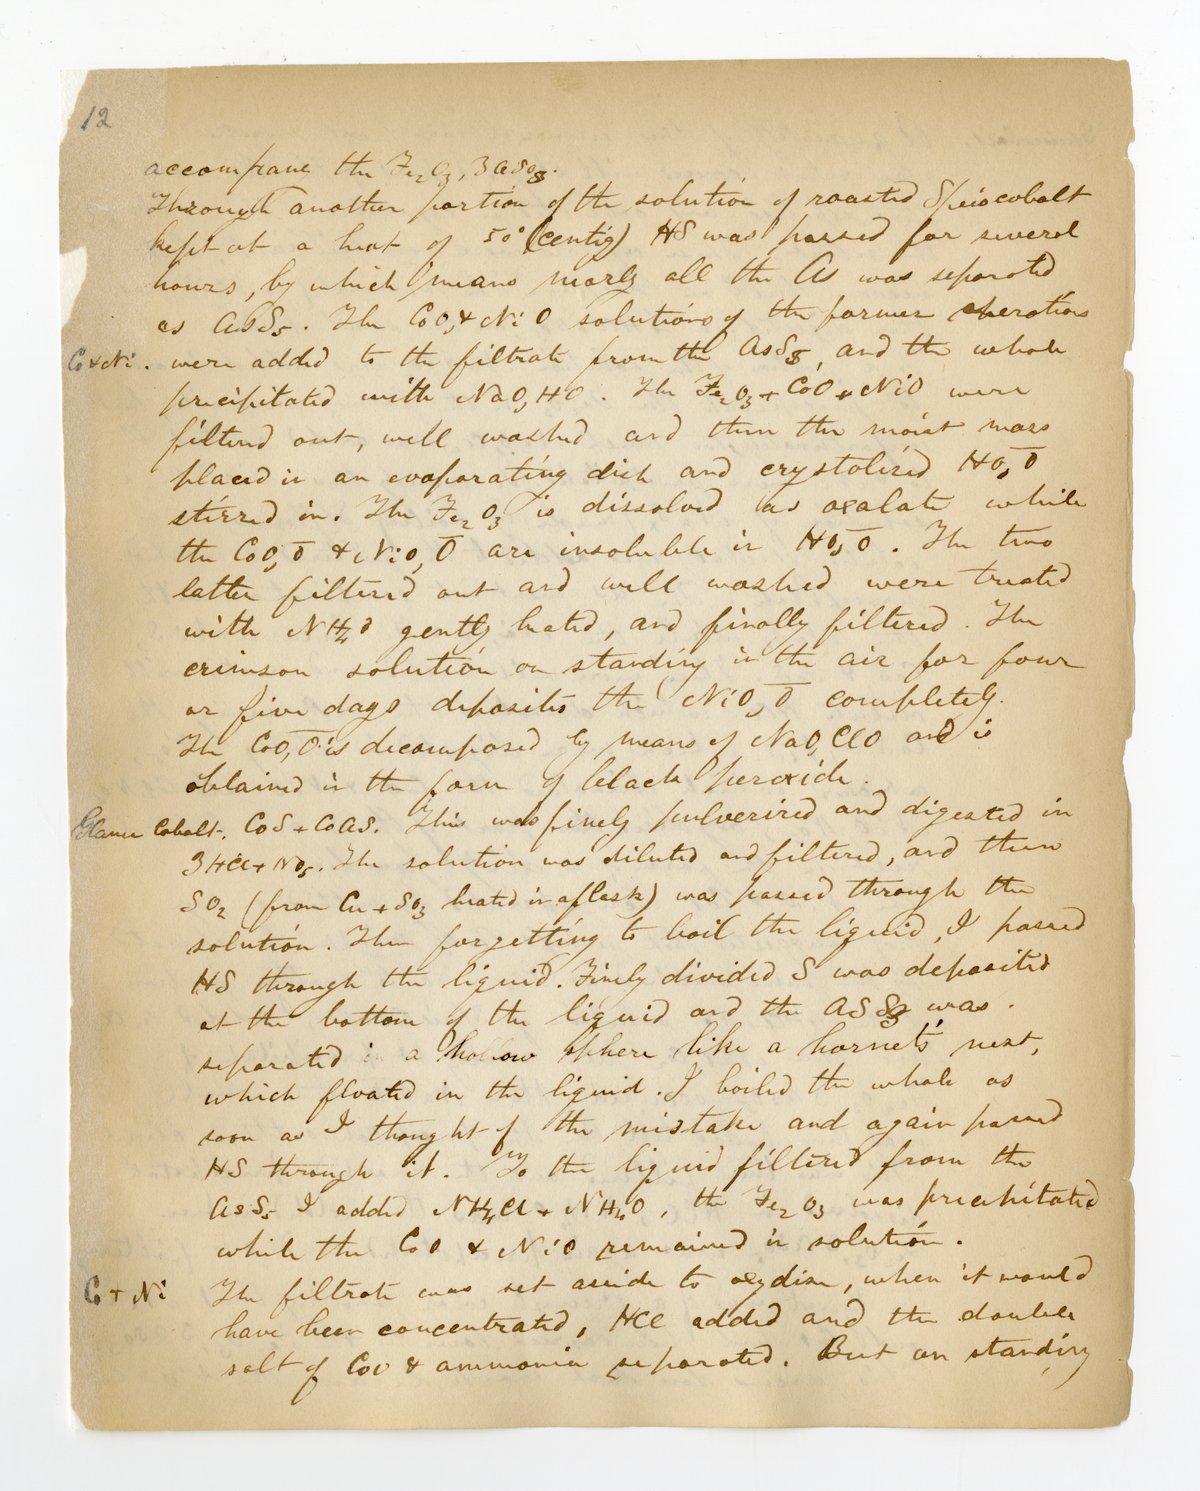 12
accompany the Fe₂O₃, 3AsO₅.
Through another portion of the solution of roasted Speiscobalt
kept at a heat of 50° (centig) HS was passed for several
hours, by which means nearly all the As was separated
as AsS₅. The CoO, & NiO solutions of the former operations
Co & Ni. were added to the filtrate from the AsS₅, and the whole
precipitated with NaO,HO. The Fe₂O₃ + CoO + NiO were
filterd out, well washed and then the moist mass
placed in an evaporating dish and crystalized HO,O̅
stirred in. The Fe₂O₃ is dissolved as oxalate while
the CoO,O̅ & NiO,O̅ are insoluble in HO,O̅. The two
latter filtered out and well washed were treated
with NH₄O gently heated, and finally filtered. The
crimson solution on standing in the air for four
or five days deposites the NiO,O̅ completely.
The CoO,O̅ is decomposed by means of NaO,ClO and is
obtained in the form of black peroxide.
Glance Cobalt. CoS + CoAs. This was finely pulverized and digested in
3HCl + NO₅. The solution was diluted and filtered, and then
SO₂ (from Cu + SO₃ heated in a flask) was passed through the
solution. Then forgetting to boil the liquid, I passed
HS through the liquid. Finely divided S was deposited
at the bottom of the liquid and the AsS₃ was
separated in a hollow sphere like a hornet's nest,
which floated in the liquid. I boiled the whole as
soon as I thought of the mistake and again passed
HS through it. To the liquid filtered from the
AsS₅ I added NH₄Cl + NH₄O, the Fe₂O₃ was precipitated
while the CoO & NiO remained in solution.
Co + Ni The filtrate was set aside to oxydise, when it would
have been concentrated, HCl added and the double
salt of CoO & ammonia separated. But on standing